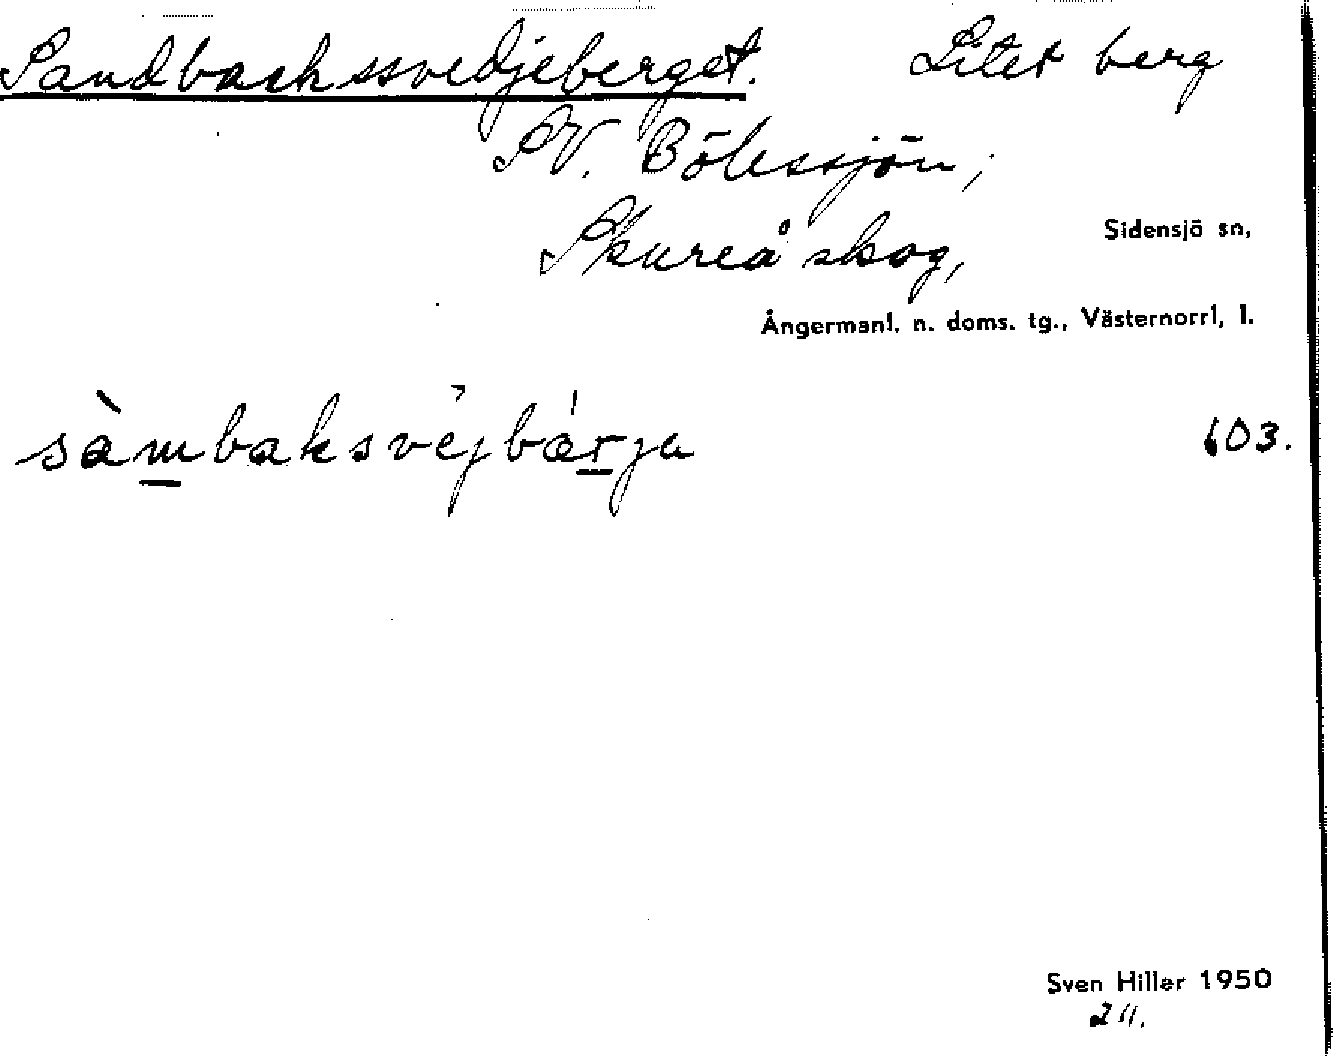 Sandbackssvedjeberget. Litet berg
SV. Bölessjön,
Skureå skog,
Sidensjö sn,
Ångermanl. n. doms. tg., Västernorrl. l.
sàmbaksvéjbárja
603.
Sven Hiller 1950
211.